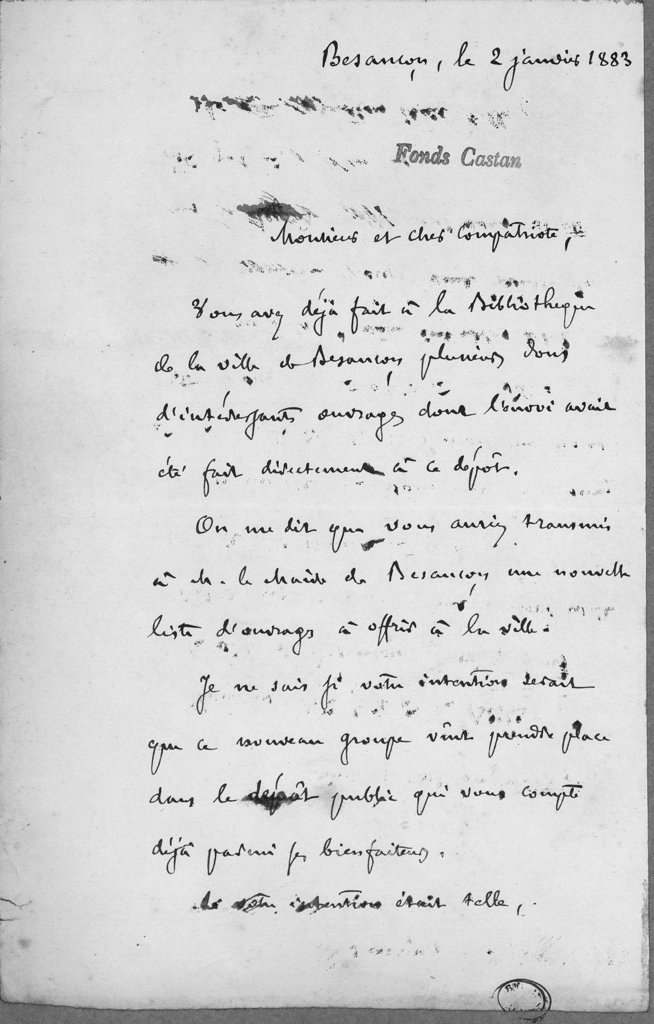 Besançon, le 2 janvier 1883
Fonds Castan
Monsieur et cher compatriote,
Vous avez déjà fait à la Bibliothèque
de la ville de Besançon plusieurs dons
d'intéressants ouvrages dont l'envoi avait
été fait directement à ce dépôt.
On me dit que vous auriez transmis
à M. le Maire de Besançon une nouvelle
liste d'ouvrages à offrir à la ville.
Je ne sais si votre intention serait
que ce nouveau groupe vînt prendre place
dans le dépôt public qui vous compte
déjà parmi ses bienfaiteurs.
Si votre intention était telle,